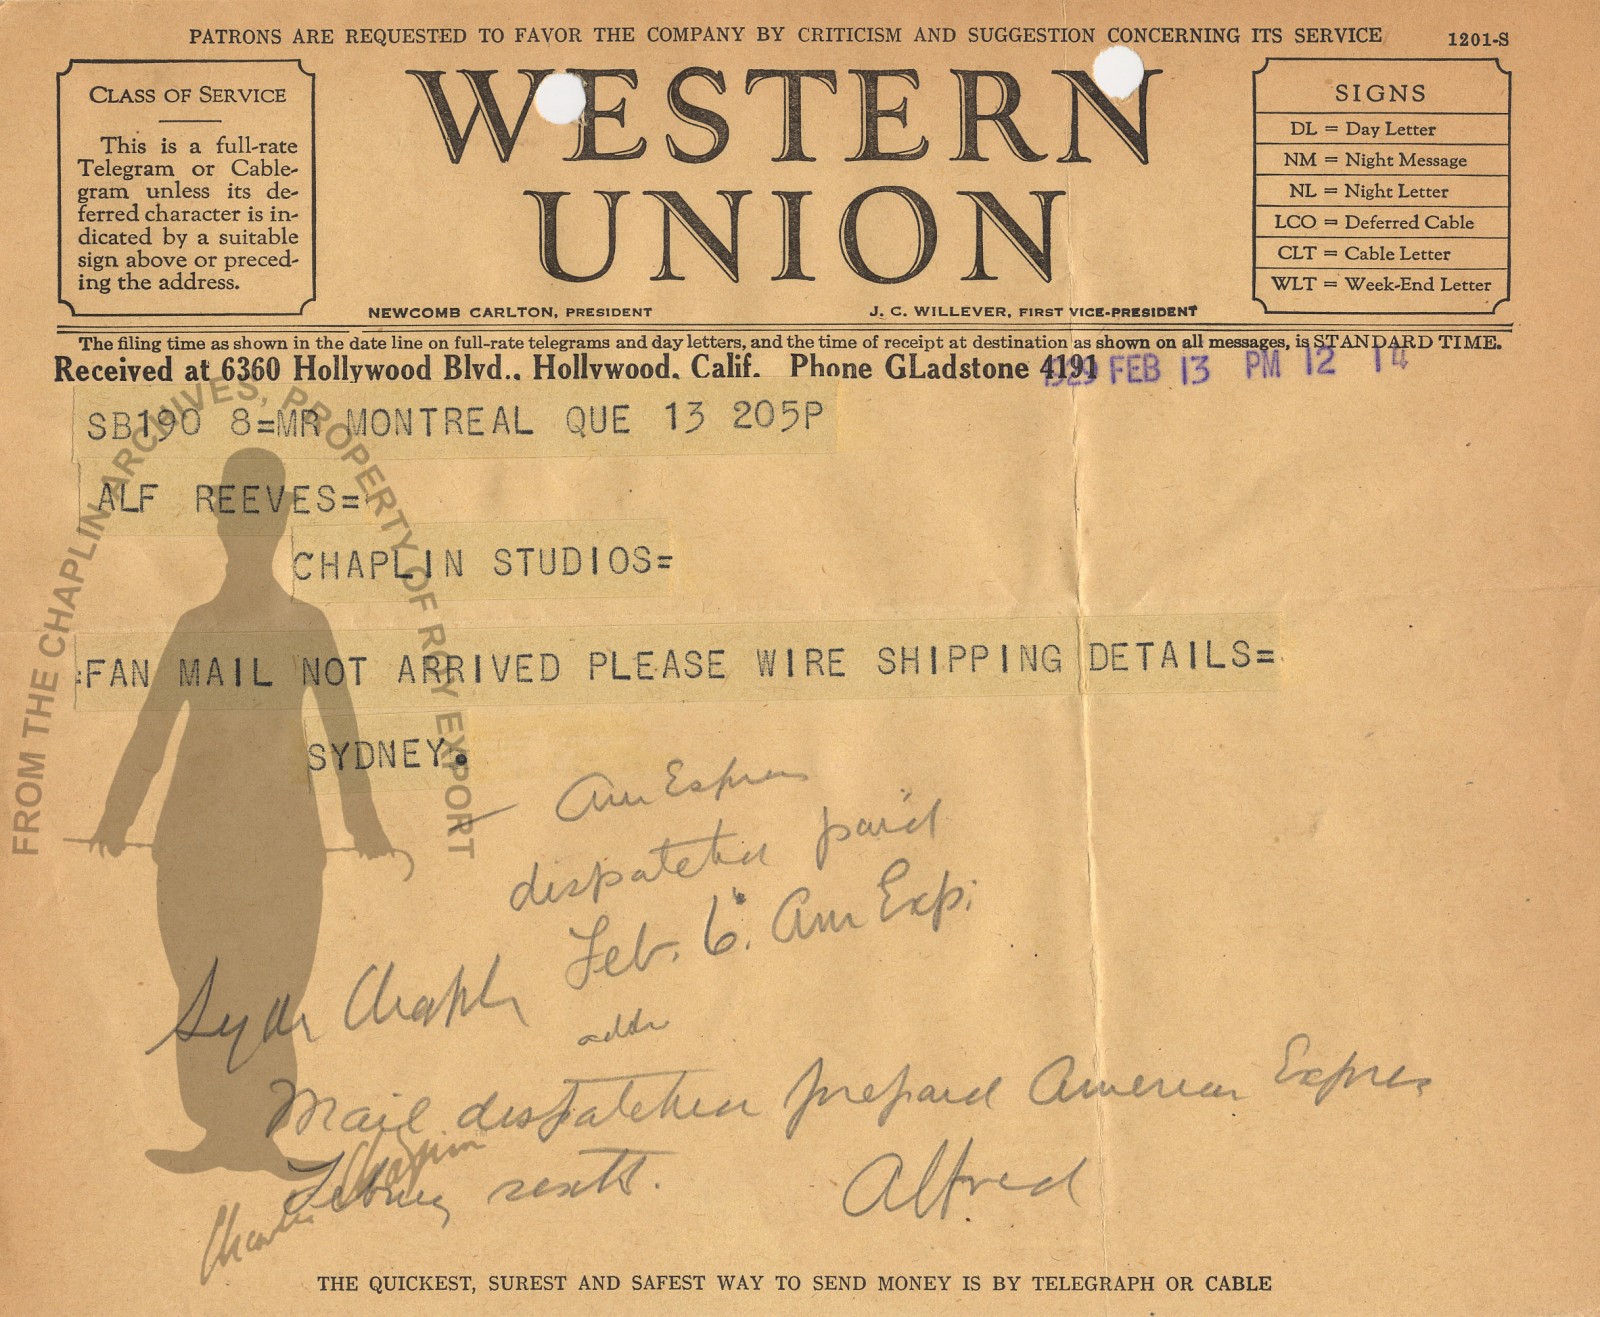 PATRONS ARE REQUESTED TO FAVOR THE COMPANY BY CRITICISM AND SUGGESTION CONCERNING ITS SERVICE
1201-S
CLASS OF SERVICE
This is a full-rate
Telegram or Cable-
gram unless its de-
ferred character is in-
dicated by a suitable
sign above or preced-
ing the address.
WESTERN
UNION
NEWCOMB CARLTON, PRESIDENT
J. C. WILLEVER, FIRST VICE-PRESIDENT
SIGNS
DL = Day Letter
NM = Night Message
NL = Night Letter
LCO = Deferred Cable
CLT = Cable Letter
WLT = Week-End Letter
The filing time as shown in the date line on full-rate telegrams and day letters, and the time of receipt at destination as shown on all messages, is STANDARD TIME.
Received at 6360 Hollywood Blvd., Hollywood, Calif. Phone GLadstone 4191
1929 FEB 13 PM 12 14
SB190 8=MR MONTREAL QUE 13 205P
ALF REEVES=
CHAPLIN STUDIOS=
:FAN MAIL NOT ARRIVED PLEASE WIRE SHIPPING DETAILS=
SYDNEY.
FROM THE CHAPLIN ARCHIVES, PROPERTY OF ROY EXPORT
Am Express
dispatched paid
Feb. 6. Am Exp.
addr
Mail dispatched prepaid American Express
sixth.
Alfred
Charlie Chaplin
THE QUICKEST, SUREST AND SAFEST WAY TO SEND MONEY IS BY TELEGRAPH OR CABLE